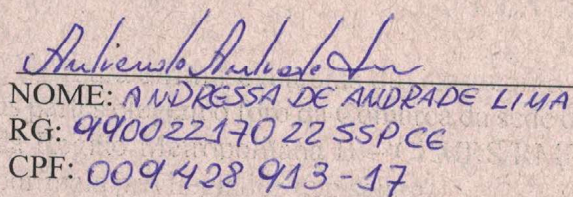 NOME: ANDRESSA DE ANDRADE LIMA
RG: 99002217022 SSPCE
CPF: 009428913-17